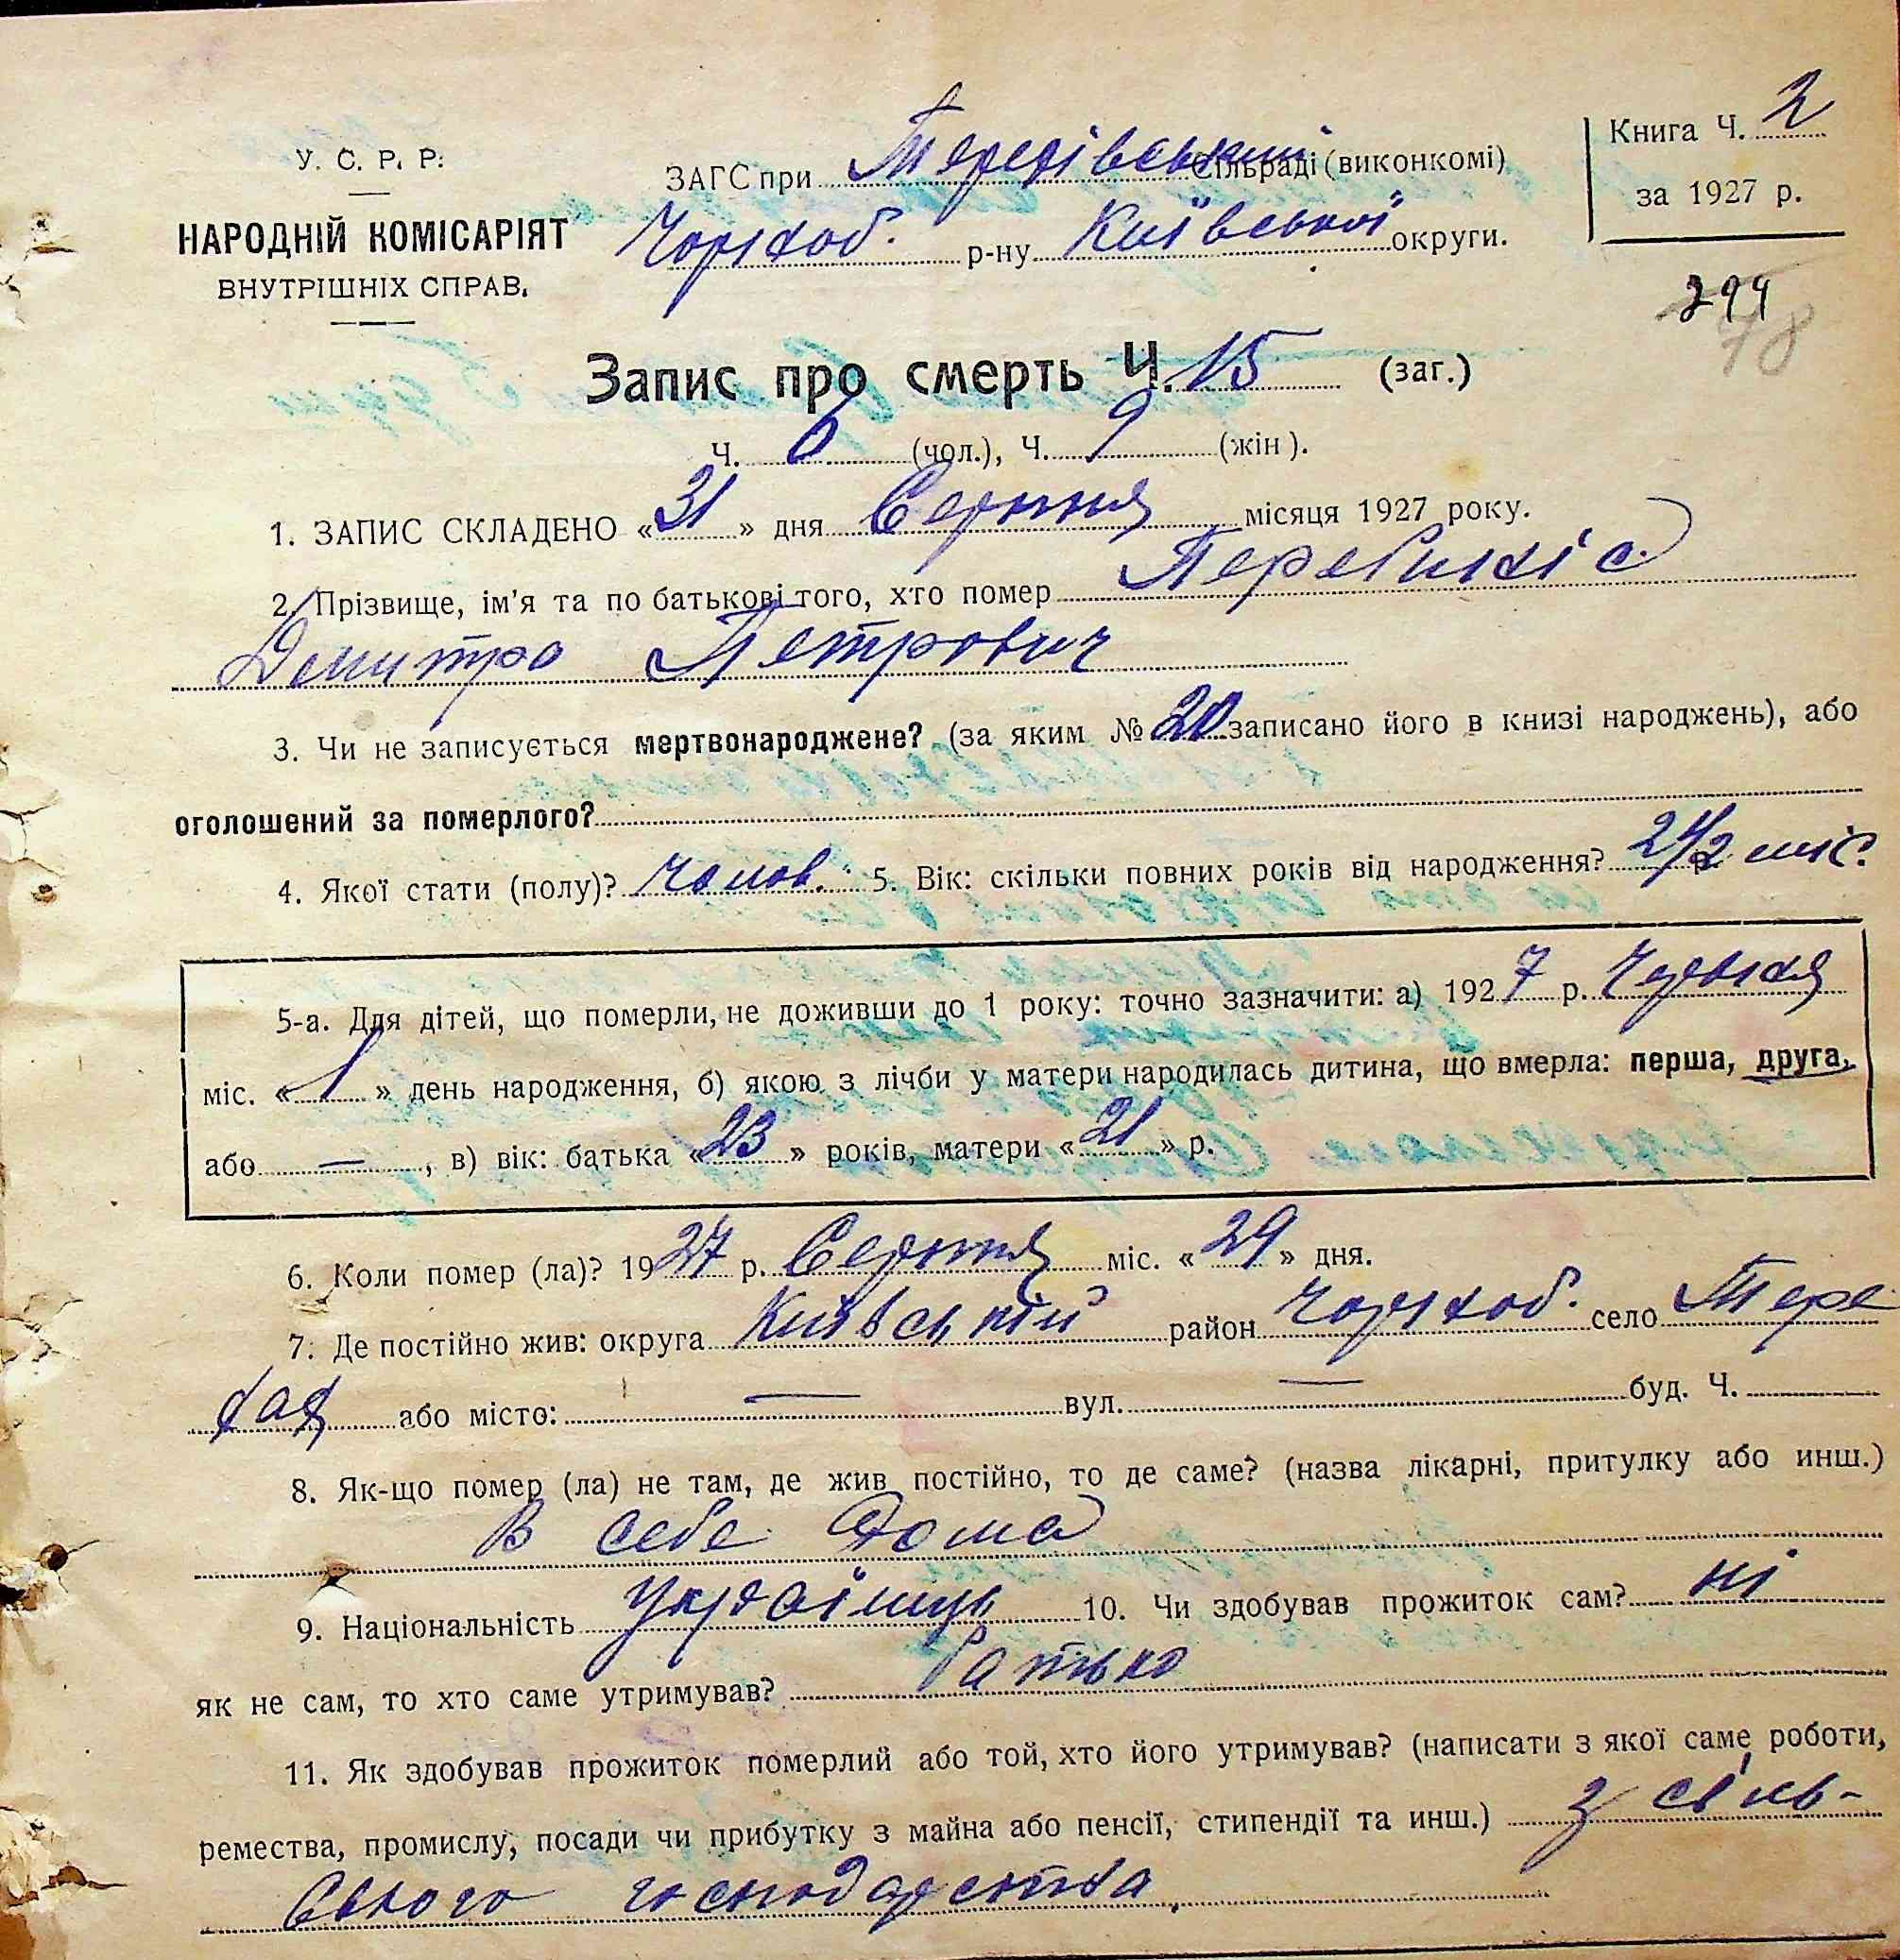 У. С. Р. Р.
НАРОДНІЙ КОМІСАРІЯТ
ВНУТРІШНІХ СПРАВ.
ЗАГС при Терехівський Сільраді (виконкомі)
Чорноб. р-ну Київської округи.
Книга Ч. 2
за 1927 р.
294
78
Запис про смерть Ч. 15 (заг.)
Ч. 6 (чол.), Ч. 9 (жін).
1. ЗАПИС СКЛАДЕНО «31» дня Серпня місяця 1927 року.
2. Прізвище, ім'я та по батькові того, хто помер
Демитро Петрович
3. Чи не записується мертвонароджене? (за яким № 20 записано його в книзі народжень), або
оголошений за померлого?
4. Якої стати (полу)? Чолов. 5. Вік: скільки повних років від народження? 2 1/2 міс.
5-а. Для дітей, що померли, не доживши до 1 року: точно зазначити: а) 1927 р. Червня
міс. «1» день народження, б) якою з лічби у матери народилась дитина, що вмерла: перша, друга,
або — , в) вік: батька «23» років, матери «21» р.
6. Коли помер (ла)? 1927 р. Серпня міс. «29» дня.
7. Де постійно жив: округа Київській район Чорноб. село Тере
хах або місто: — вул. — буд. Ч.
8. Як-що помер (ла) не там, де жив постійно, то де саме? (назва лікарні, притулку або инш.)
В себе дома
9. Національність Українець 10. Чи здобував прожиток сам? ні
як не сам, то хто саме утримував? батько
11. Як здобував прожиток померлий або той, хто його утримував? (написати з якої саме роботи,
ремества, промислу, посади чи прибутку з майна або пенсії, стипендії та инш.) з сіль-
ського господарства